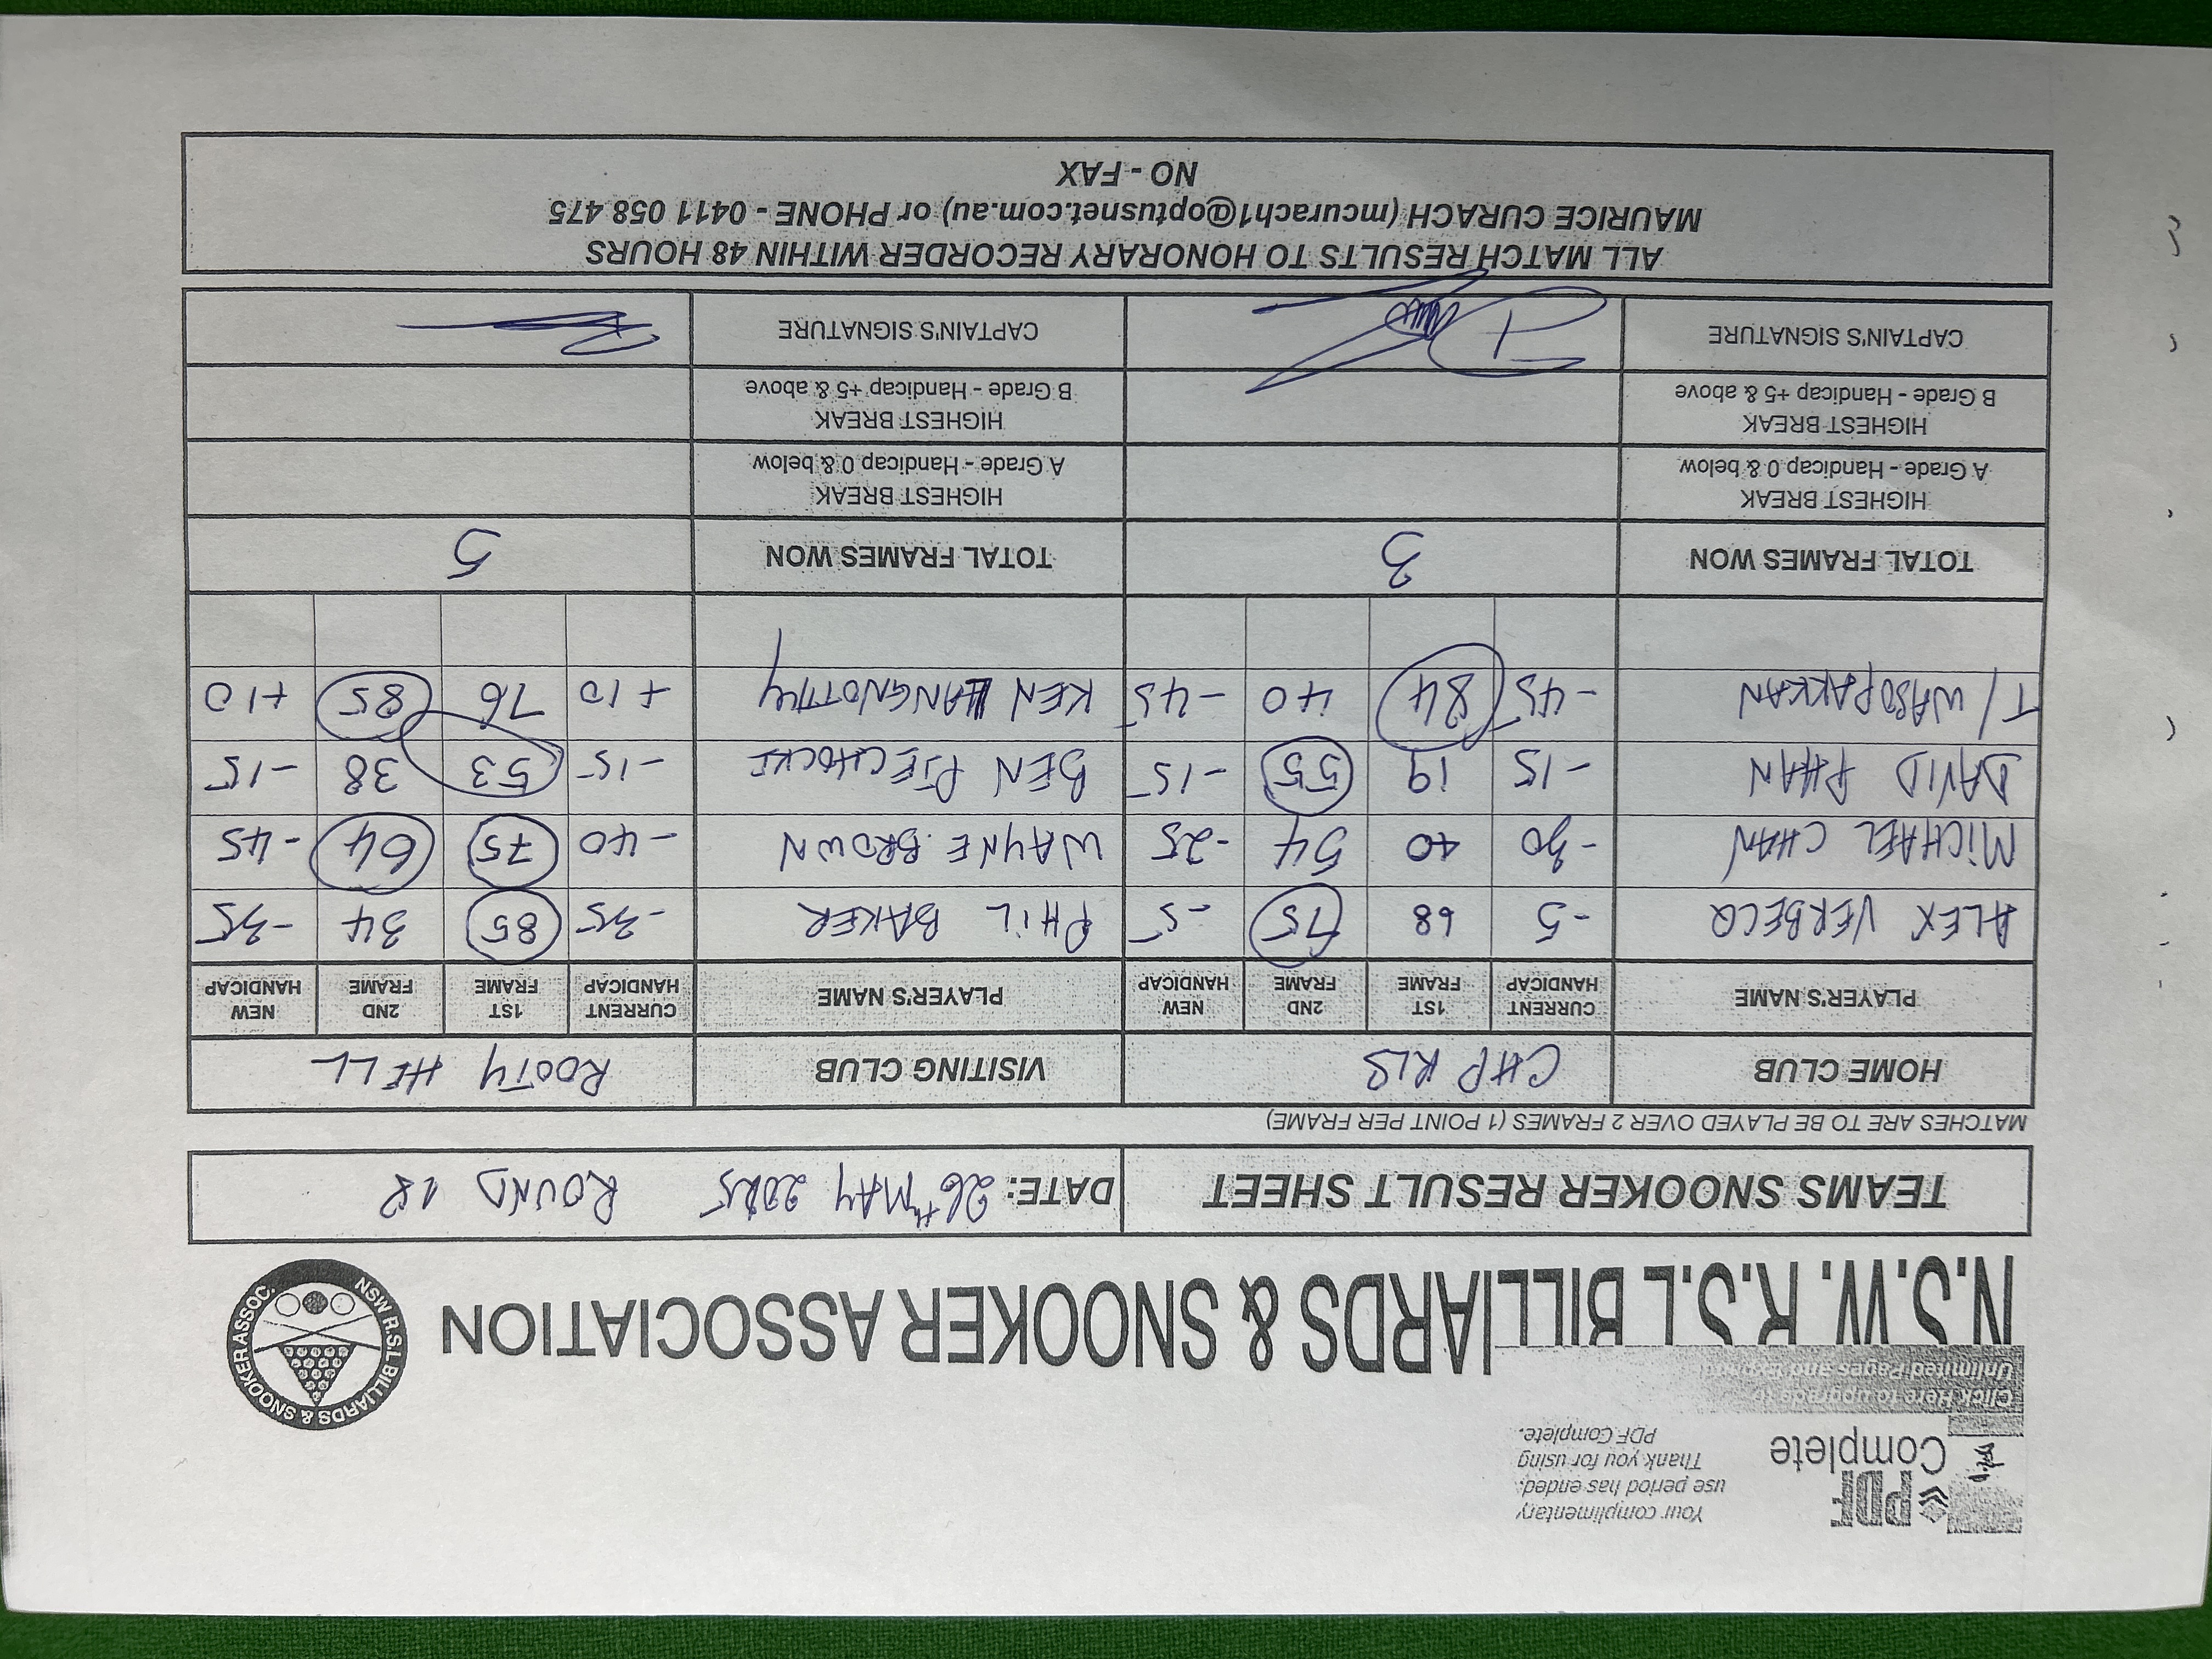 PDF Complete
Your complimentary
use period has ended.
Thank you for using
PDF Complete.
Click Here to upgrade to
Unlimited Pages and
N.S.W. R.S.L BILLIARDS & SNOOKER ASSOCIATION
NSW R.S.L BILLIARDS & SNOOKER ASSOC.
TEAMS SNOOKER RESULT SHEET DATE: 26th MAY 2025 ROUND 18
MATCHES ARE TO BE PLAYED OVER 2 FRAMES (1 POINT PER FRAME)
HOME CLUB CHP RLS VISITING CLUB ROOTY HELL
PLAYER'S NAME CURRENT HANDICAP 1ST FRAME 2ND FRAME NEW HANDICAP PLAYER'S NAME CURRENT HANDICAP 1ST FRAME 2ND FRAME NEW HANDICAP
ALEX VERBECQ -5 68 75 -5 PHIL BAKER -35 85 34 -35
MICHAEL CHAN -30 40 54 -25 WAYNE BROWN -40 75 64 -45
DAVID PHAN -15 19 55 -15 BEN PIECHOCKI -15 53 38 -15
T/ WASOPAKKAN -45 84 40 -45 KEN LANGNOTHY +10 76 85 +10
TOTAL FRAMES WON 3 TOTAL FRAMES WON 5
HIGHEST BREAK HIGHEST BREAK
A Grade - Handicap 0 & below A Grade - Handicap 0 & below
HIGHEST BREAK HIGHEST BREAK
B Grade - Handicap +5 & above B Grade - Handicap +5 & above
CAPTAIN'S SIGNATURE CAPTAIN'S SIGNATURE
ALL MATCH RESULTS TO HONORARY RECORDER WITHIN 48 HOURS
MAURICE CURACH (mcurach1@optusnet.com.au) or PHONE - 0411 058 475
NO - FAX